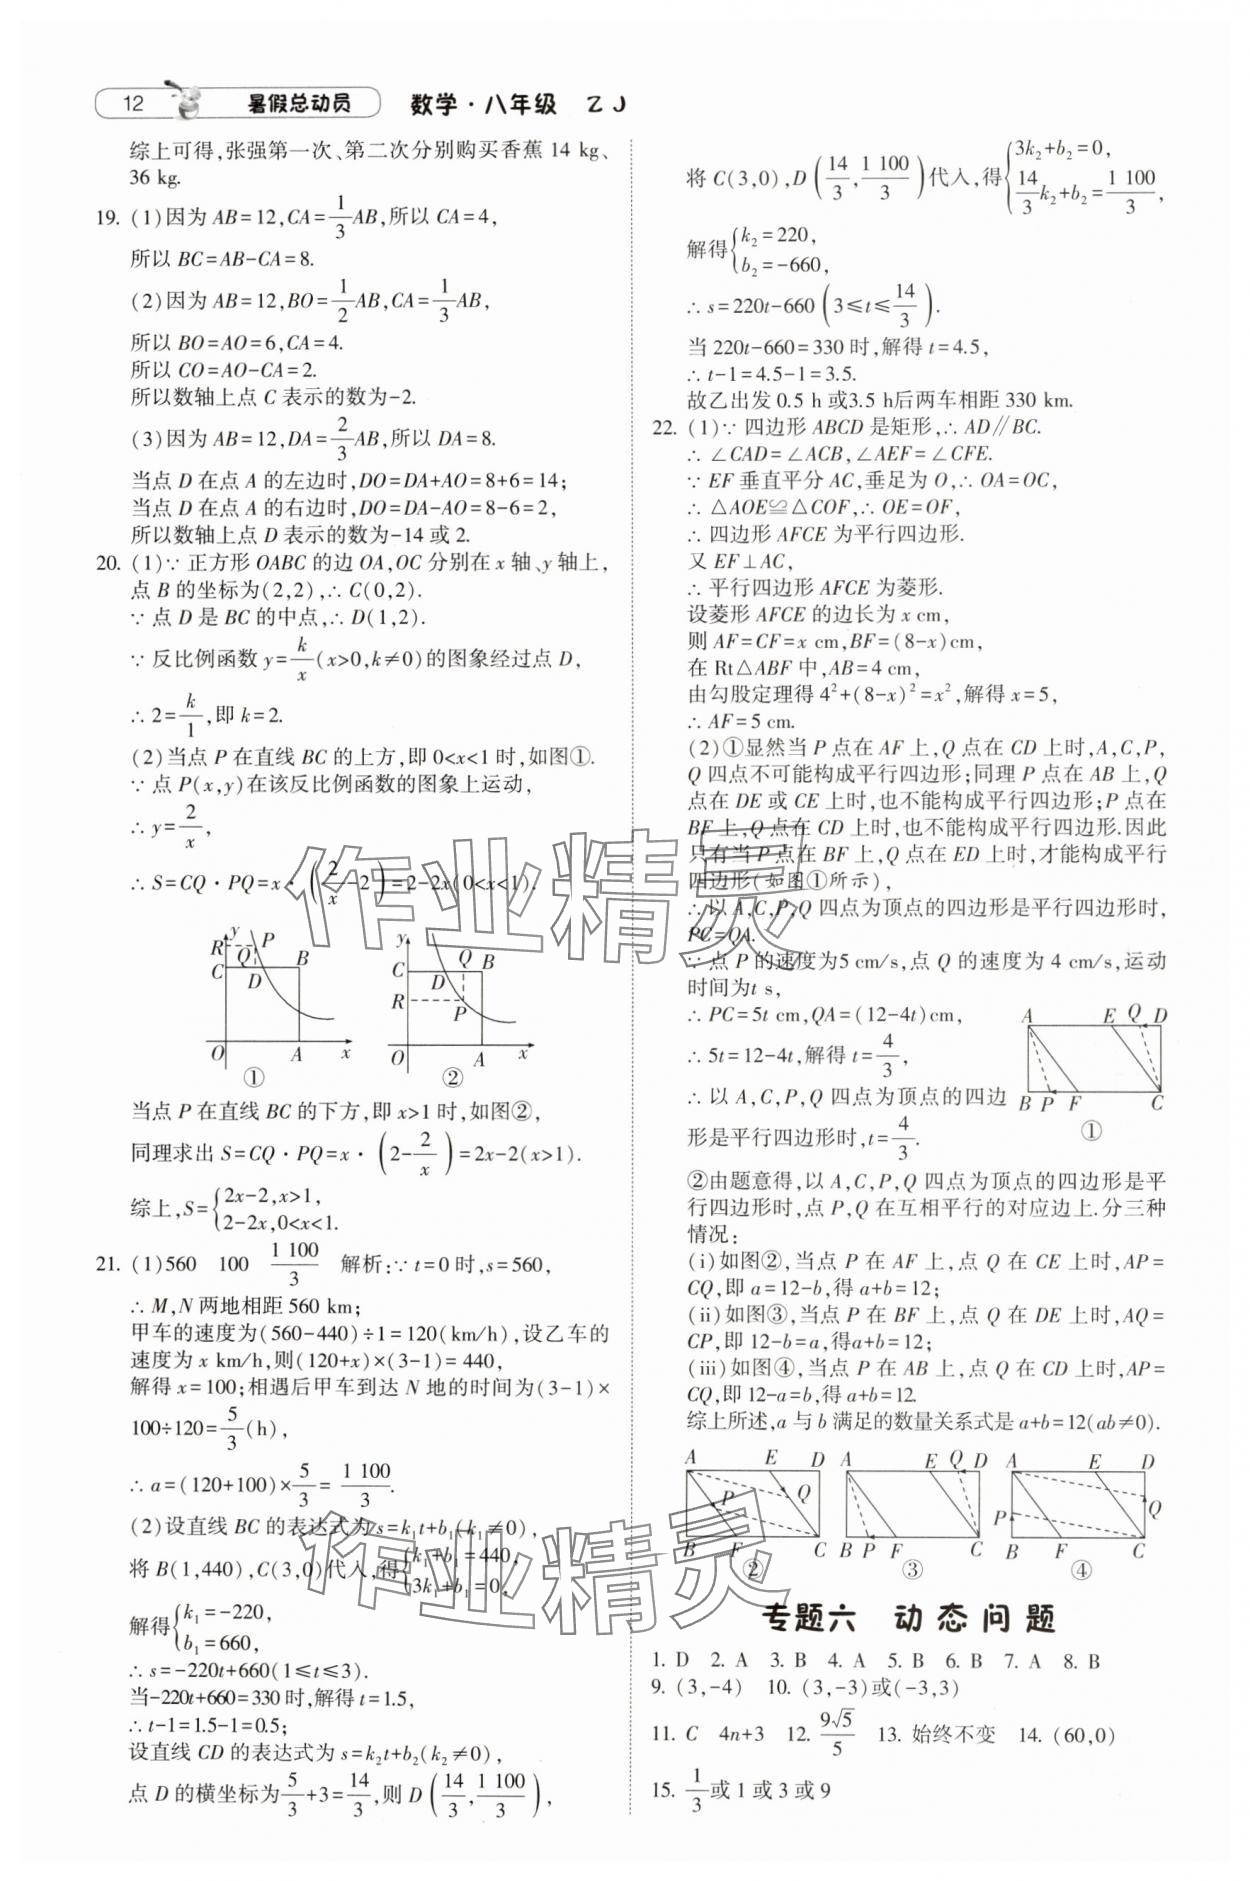 12 暑假总动员 数学·八年级 ZJ
综上可得,张强第一次、第二次分别购买香蕉 14 kg、
36 kg.
19. (1)因为 AB=12,CA=1/3AB,所以 CA=4,
所以 BC=AB-CA=8.
(2)因为 AB=12,BO=1/2AB,CA=1/3AB,
所以 BO=AO=6,CA=4.
所以 CO=AO-CA=2.
所以数轴上点 C 表示的数为-2.
(3)因为 AB=12,DA=2/3AB,所以 DA=8.
当点 D 在点 A 的左边时,DO=DA+AO=8+6=14;
当点 D 在点 A 的右边时,DO=DA-AO=8-6=2,
所以数轴上点 D 表示的数为-14 或 2.
20. (1)∵ 正方形 OABC 的边 OA,OC 分别在 x 轴、y 轴上,
点 B 的坐标为(2,2),∴ C(0,2).
∵ 点 D 是 BC 的中点,∴ D(1,2).
∵ 反比例函数 y=k/x(x>0,k≠0)的图象经过点 D,
∴ 2=k/1,即 k=2.
(2)当点 P 在直线 BC 的上方,即 0<x<1 时,如图①.
∵ 点 P(x,y)在该反比例函数的图象上运动,
∴ y=2/x,
∴ S=CQ·PQ=x·(2/x-2)=2-2x(0<x<1).
y R P Q B C D O A x ①
y C Q B D R P O A x ②
当点 P 在直线 BC 的下方,即 x>1 时,如图②,
同理求出 S=CQ·PQ=x·(2-2/x)=2x-2(x>1).
综上,S={2x-2,x>1,
2-2x,0<x<1.
21. (1)560 100 1 100/3 解析:∵ t=0 时,s=560,
∴ M,N 两地相距 560 km;
甲车的速度为(560-440)÷1=120(km/h),设乙车的
速度为 x km/h,则(120+x)×(3-1)=440,
解得 x=100;相遇后甲车到达 N 地的时间为(3-1)×
100÷120=5/3(h),
∴ a=(120+100)×5/3=1 100/3.
(2)设直线 BC 的表达式为 s=k₁t+b₁(k₁≠0),
将 B(1,440),C(3,0)代入,得{k₁+b₁=440,
3k₁+b₁=0,
解得{k₁=-220,
b₁=660,
∴ s=-220t+660(1≤t≤3).
当-220t+660=330 时,解得 t=1.5,
∴ t-1=1.5-1=0.5;
设直线 CD 的表达式为 s=k₂t+b₂(k₂≠0),
点 D 的横坐标为5/3+3=14/3,则 D(14/3,1 100/3),
将 C(3,0),D(14/3,1 100/3)代入,得{3k₂+b₂=0,
14/3k₂+b₂=1 100/3,
解得{k₂=220,
b₂=-660,
∴ s=220t-660(3≤t≤14/3).
当 220t-660=330 时,解得 t=4.5,
∴ t-1=4.5-1=3.5.
故乙出发 0.5 h 或3.5 h后两车相距 330 km.
22. (1)∵ 四边形 ABCD 是矩形,∴ AD∥BC.
∴ ∠CAD=∠ACB,∠AEF=∠CFE.
∵ EF 垂直平分 AC,垂足为 O,∴ OA=OC,
∴ △AOE≌△COF,∴ OE=OF,
∴ 四边形 AFCE 为平行四边形.
又 EF⊥AC,
∴ 平行四边形 AFCE 为菱形.
设菱形 AFCE 的边长为 x cm,
则 AF=CF=x cm,BF=(8-x)cm,
在 Rt△ABF 中,AB=4 cm,
由勾股定理得 4²+(8-x)²=x²,解得 x=5,
∴ AF=5 cm.
(2)①显然当 P 点在 AF 上,Q 点在 CD 上时,A,C,P,
Q 四点不可能构成平行四边形;同理 P 点在 AB 上,Q
点在 DE 或 CE 上时,也不能构成平行四边形;P 点在
BF 上,Q 点在 CD 上时,也不能构成平行四边形.因此
只有当 P 点在 BF 上,Q 点在 ED 上时,才能构成平行
四边形(如图①所示),
∴以 A,C,P,Q 四点为顶点的四边形是平行四边形时,
PC=QA.
∵ 点 P 的速度为5 cm/s,点 Q 的速度为 4 cm/s,运动
时间为t s,
∴ PC=5t cm,QA=(12-4t)cm,
∴ 5t=12-4t,解得 t=4/3,
∴ 以 A,C,P,Q 四点为顶点的四边
形是平行四边形时,t=4/3.
A E Q D B P F C ①
②由题意得,以 A,C,P,Q 四点为顶点的四边形是平
行四边形时,点 P,Q 在互相平行的对应边上.分三种
情况:
(i)如图②,当点 P 在 AF 上,点 Q 在 CE 上时,AP=
CQ,即 a=12-b,得 a+b=12;
(ii)如图③,当点 P 在 BF 上,点 Q 在 DE 上时,AQ=
CP,即 12-b=a,得a+b=12;
(iii)如图④,当点 P 在 AB 上,点 Q 在 CD 上时,AP=
CQ,即 12-a=b,得 a+b=12.
综上所述,a 与 b 满足的数量关系式是 a+b=12(ab≠0).
A E D P Q B F C ②
A E Q D B P F C ③
A E D Q P B F C ④
专题六 动态问题
1. D 2. A 3. B 4. A 5. B 6. B 7. A 8. B
9. (3,-4) 10. (3,-3)或(-3,3)
11. C 4n+3 12. 9√5/5 13. 始终不变 14. (60,0)
15. 1/3或 1 或 3 或 9
作业精灵
作业精灵